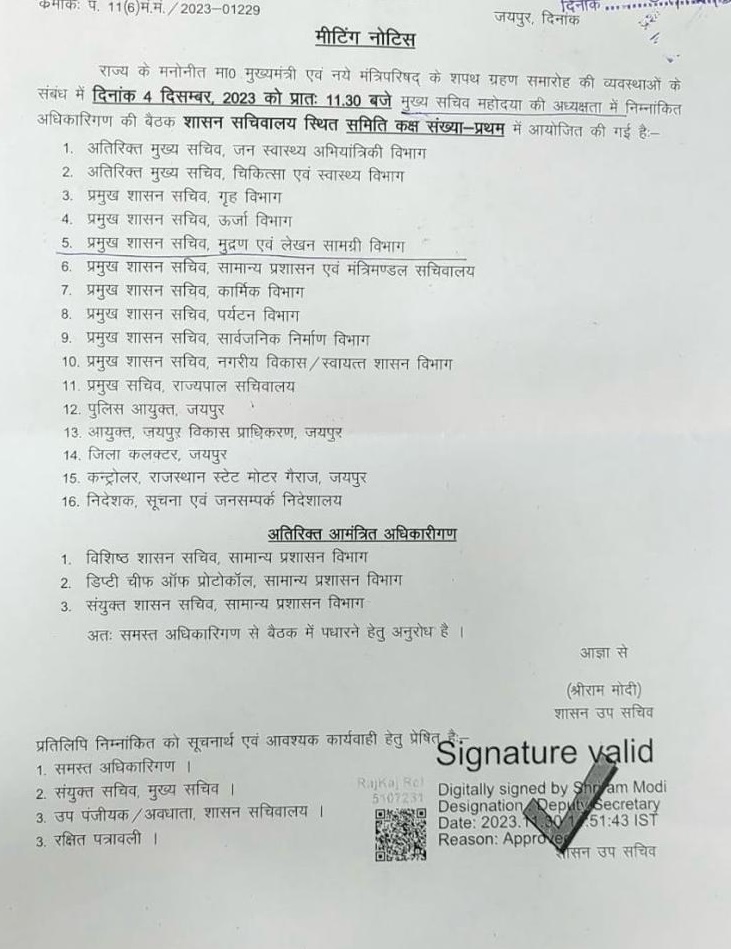 क्रमांकः प. 11(6)मं.मं./2023-01229
जयपुर, दिनांक
दिनांक
मीटिंग नोटिस
राज्य के मनोनीत मा0 मुख्यमंत्री एवं नये मंत्रिपरिषद् के शपथ ग्रहण समारोह की व्यवस्थाओं के
संबंध में दिनांक 4 दिसम्बर, 2023 को प्रातः 11.30 बजे मुख्य सचिव महोदया की अध्यक्षता में निम्नांकित
अधिकारिगण की बैठक शासन सचिवालय स्थित समिति कक्ष संख्या–प्रथम में आयोजित की गई हैः–
1. अतिरिक्त मुख्य सचिव, जन स्वास्थ्य अभियांत्रिकी विभाग
2. अतिरिक्त मुख्य सचिव, चिकित्सा एवं स्वास्थ्य विभाग
3. प्रमुख शासन सचिव, गृह विभाग
4. प्रमुख शासन सचिव, ऊर्जा विभाग
5. प्रमुख शासन सचिव, मुद्रण एवं लेखन सामग्री विभाग
6. प्रमुख शासन सचिव, सामान्य प्रशासन एवं मंत्रिमण्डल सचिवालय
7. प्रमुख शासन सचिव, कार्मिक विभाग
8. प्रमुख शासन सचिव, पर्यटन विभाग
9. प्रमुख शासन सचिव, सार्वजनिक निर्माण विभाग
10. प्रमुख शासन सचिव, नगरीय विकास/स्वायत्त शासन विभाग
11. प्रमुख सचिव, राज्यपाल सचिवालय
12. पुलिस आयुक्त, जयपुर
13. आयुक्त, जयपुर विकास प्राधिकरण, जयपुर
14. जिला कलक्टर, जयपुर
15. कन्ट्रोलर, राजस्थान स्टेट मोटर गैराज, जयपुर
16. निदेशक, सूचना एवं जनसम्पर्क निदेशालय
अतिरिक्त आमंत्रित अधिकारीगण
1. विशिष्ठ शासन सचिव, सामान्य प्रशासन विभाग
2. डिप्टी चीफ ऑफ प्रोटोकॉल, सामान्य प्रशासन विभाग
3. संयुक्त शासन सचिव, सामान्य प्रशासन विभाग
अतः समस्त अधिकारिगण से बैठक में पधारने हेतु अनुरोध है ।
आज्ञा से
(श्रीराम मोदी)
शासन उप सचिव
प्रतिलिपि निम्नांकित को सूचनार्थ एवं आवश्यक कार्यवाही हेतु प्रेषित हैः–
1. समस्त अधिकारिगण ।
2. संयुक्त सचिव, मुख्य सचिव ।
3. उप पंजीयक/अवधाता, शासन सचिवालय ।
3. रक्षित पत्रावली ।
RajKaj Ref
5107231
Signature valid
Digitally signed by Shriram Modi
Designation Deputy Secretary
Date: 2023.11.30 :51:43 IST
Reason: Approved
शासन उप सचिव